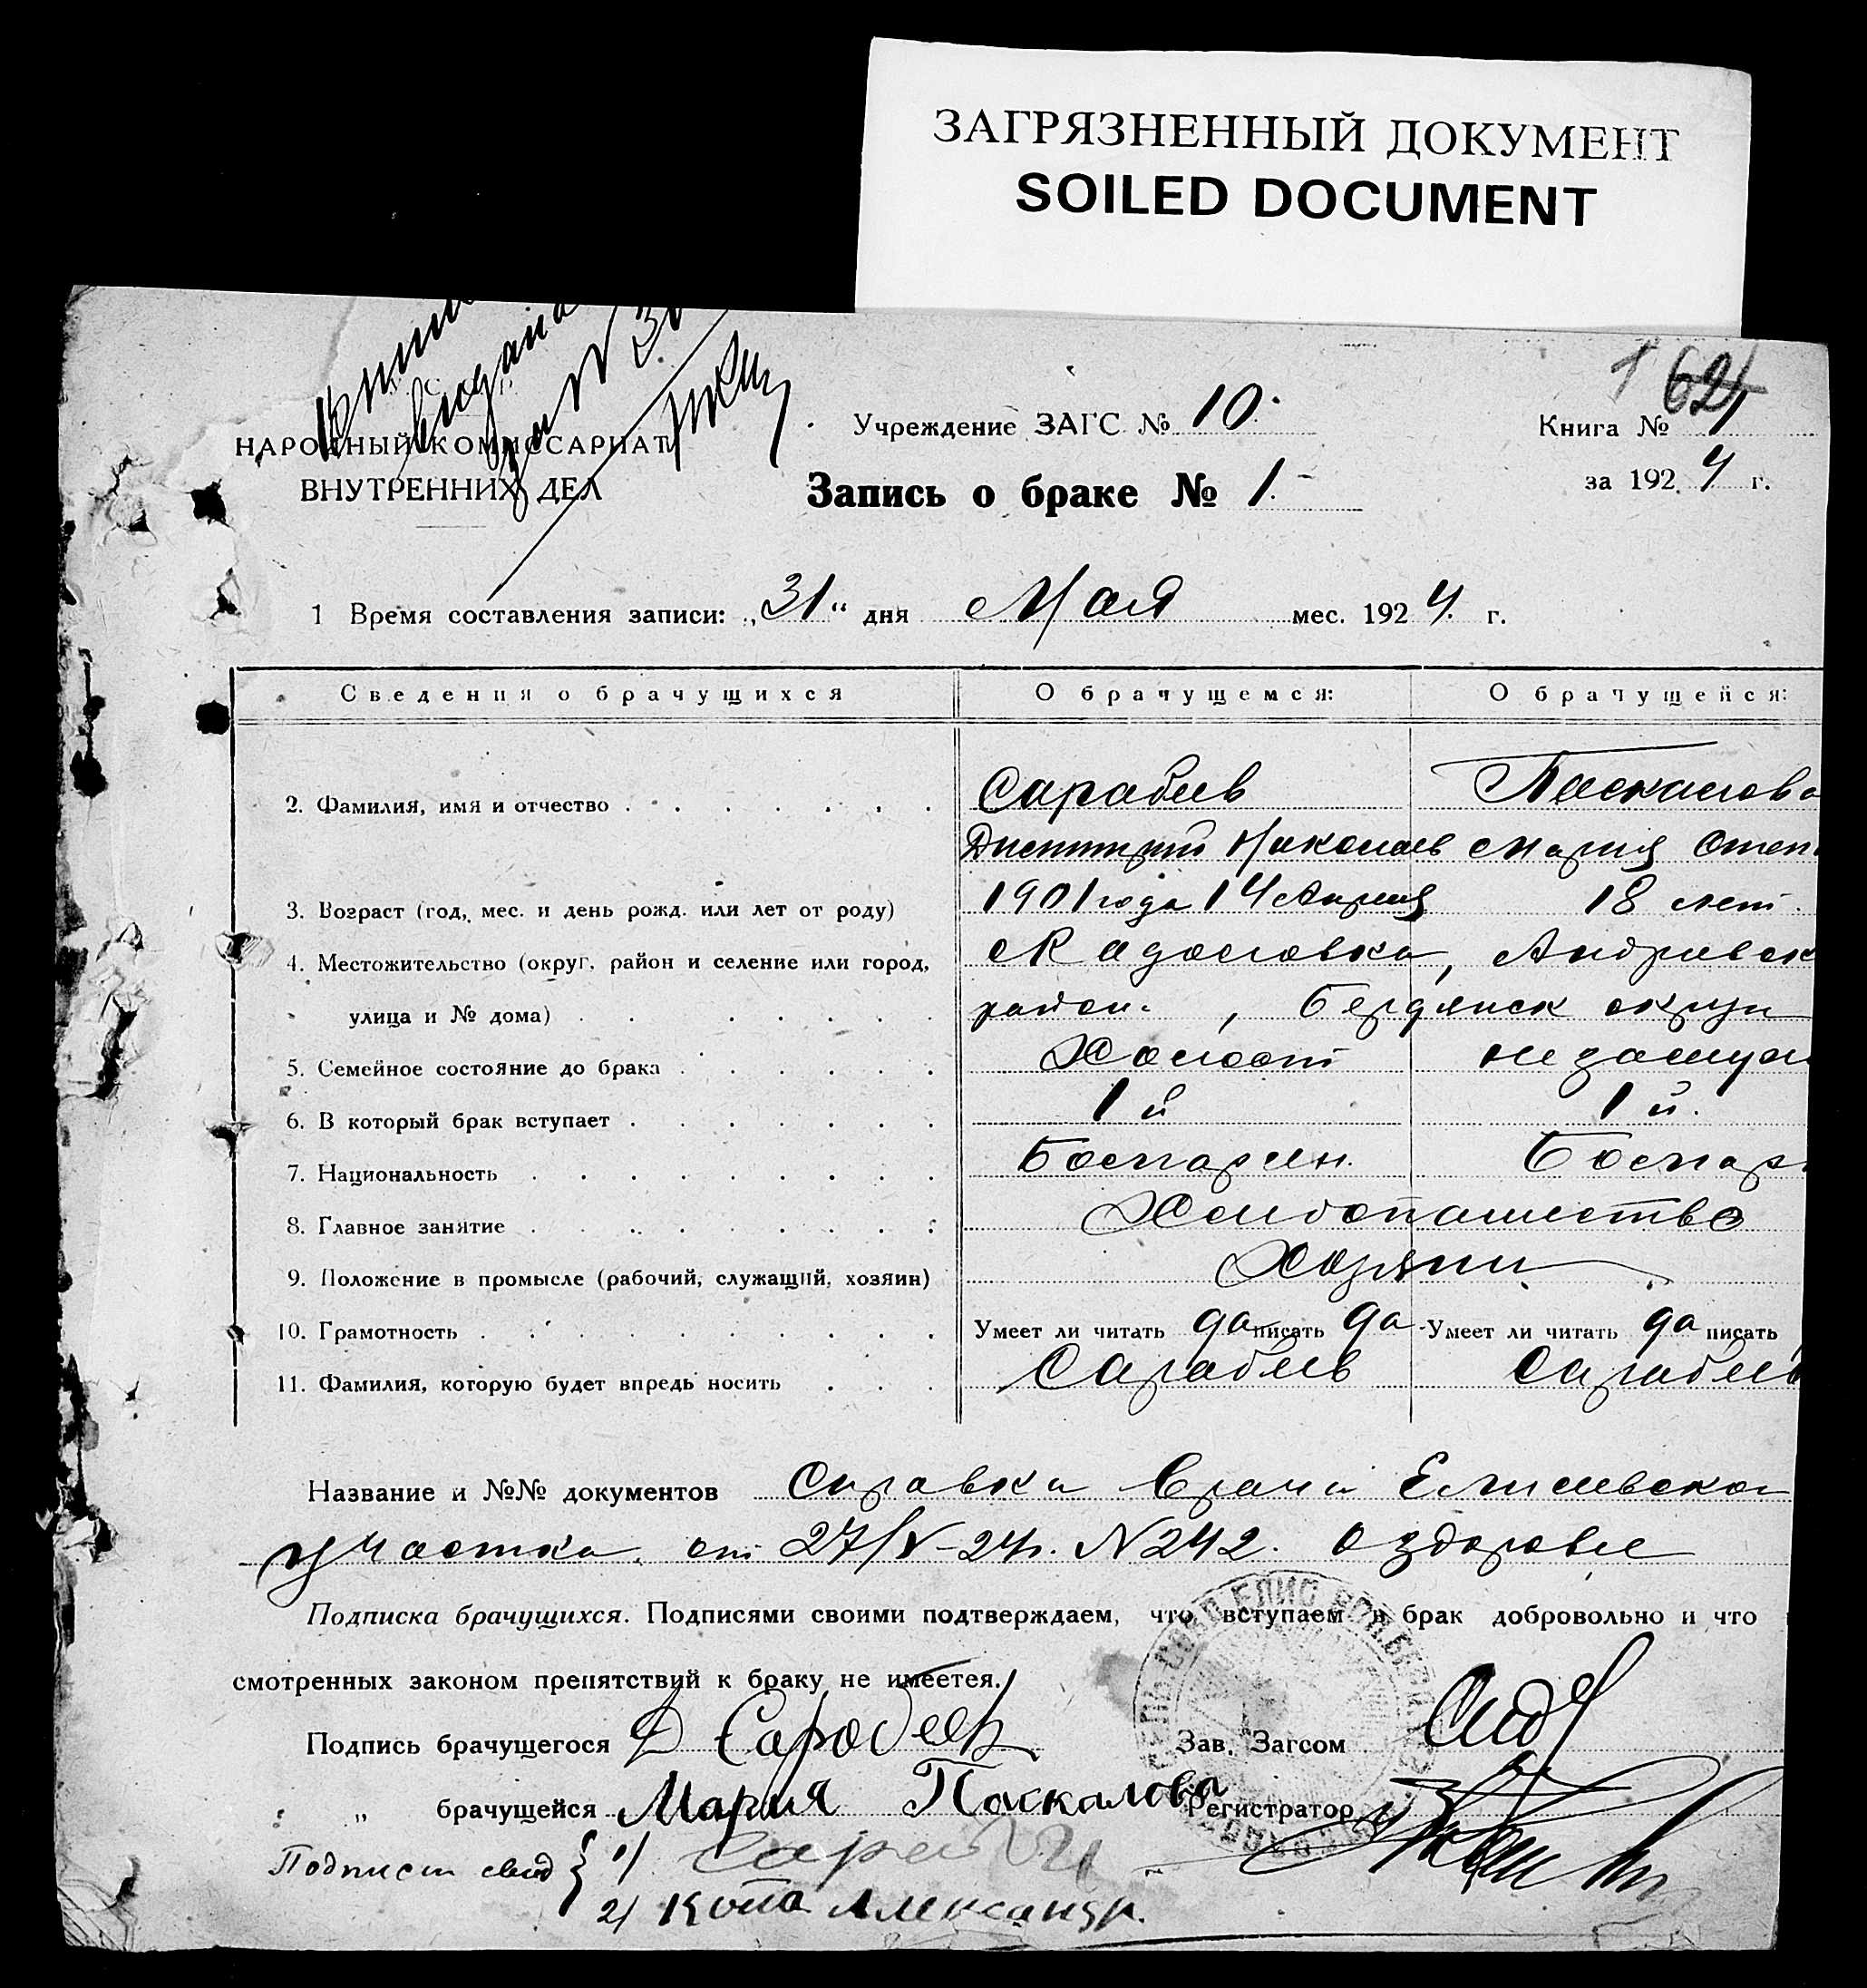 ЗАГРЯЗНЕННЫЙ ДОКУМЕНТ
SOILED DOCUMENT
1 62
НАРОДНЫЙ КОМИССАРИАТ
ВНУТРЕННИХ ДЕЛ
Учреждение ЗАГС № 10.
Книга № 1
Запись о браке № 1.
за 1924 г.
1 Время составления записи: „31“ дня Мая мес. 1924. г.
Сведения о брачущихся О брачущемся: О брачущейся:
2. Фамилия, имя и отчество Сарабеев Паскалова
Дмитрий Николаев Мария Степ
3. Возраст (год, мес. и день рожд. или лет от роду) 1901 года 14 Апреля 18 лет.
4. Местожительство (округ, район и селение или город, Андриевск
улица и № дома) район , Бердянск округа
5. Семейное состояние до брака Холост незамуж
6. В который брак вступает 1й 1й.
7. Национальность Болгарин. Болгар
8. Главное занятие Хлебопашество
9. Положение в промысле (рабочий, служащий, хозяин) Хозяин
10. Грамотность Умеет ли читать да писать да Умеет ли читать да писать
11. Фамилия, которую будет впредь носить Сарабеев Сарабеев
Название и №№ документов Справка врача
участка от 27/V-24г. N242. о здоровье
Подписка брачущихся. Подписями своими подтверждаем, что вступаем в брак добровольно и что
смотренных законом препятствий к браку не имеется.
Подпись брачущегося Д Сарабеев Зав. Загсом
„ брачущейся Мария Паскалова Регистратор
Подписи свид { 1)
2) Александр.